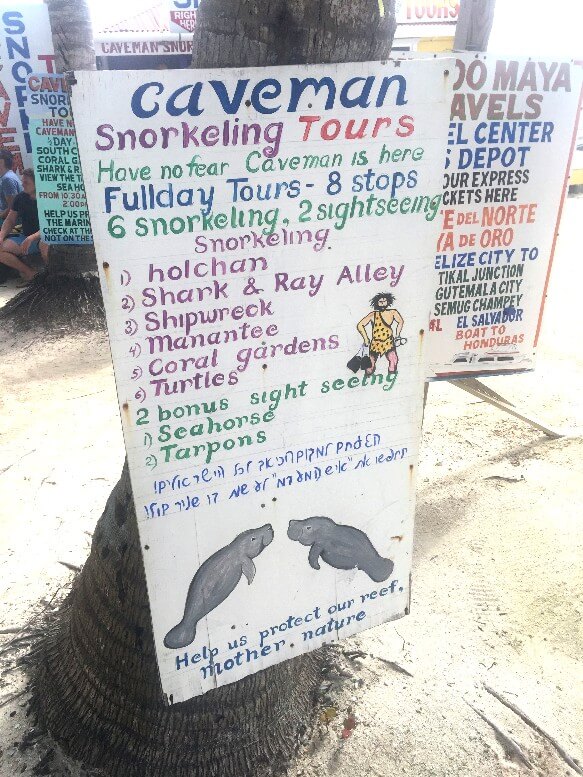 caveman
Snorkeling Tours
Have no fear Caveman is here
Fullday Tours - 8 stops
6 snorkeling, 2 sightseeing
Snorkeling
1) holchan
2) Shark & Ray Alley
3) Shipwreck
4) Manantee
5) Coral gardens
6) Turtles
2 bonus sight seeing
1) Seahorse
2) Tarpons
לכל הישראלים!
תחפשו את "איש המערות"
Help us protect our reef,
mother nature
CAVEMAN SNOR
TOURS
OO MAYA
AVELS
EL CENTER
S DEPOT
OUR EXPRESS
CKETS HERE
E DEL NORTE
YA DE ORO
ELIZE CITY TO
TIKAL JUNCTION
GUTEMALA CITY
SEMUG CHAMPEY
EL SALVADOR
BOAT TO
HONDURAS
SNOR
TO
HAVE N
CAVEMAN
½DAY
SOUTH C
CORAL G
SHARK & R
VIEW THE T
SEA HO
FROM 10.30
2.00P
HELP US P
THE MARIN
CHECK AT TH
NOT ON THE